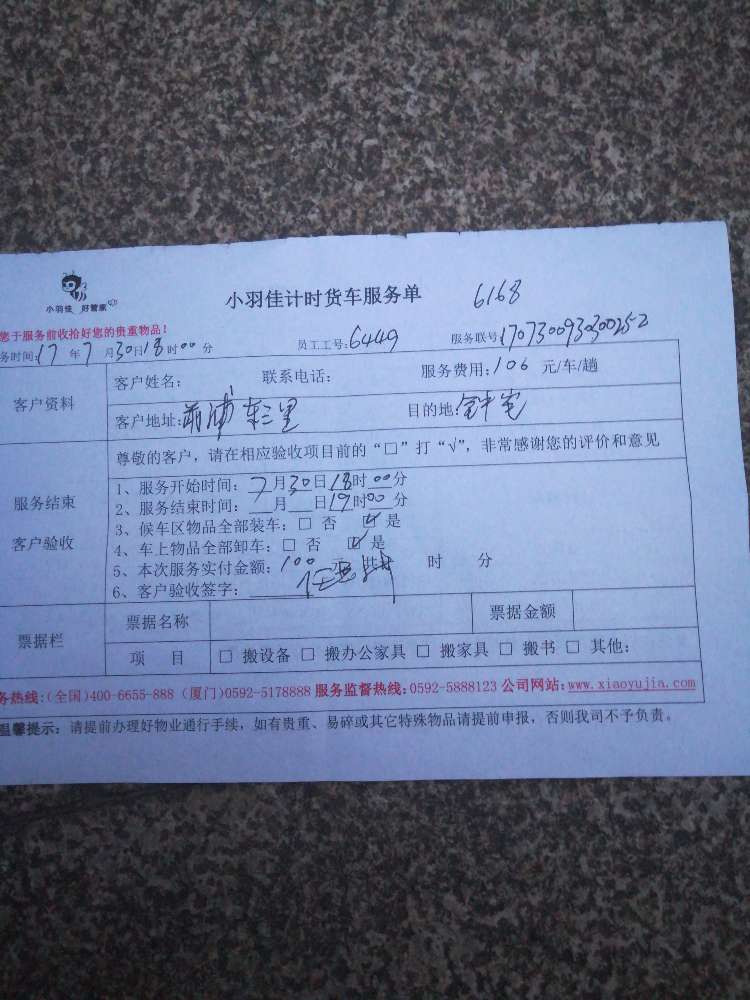 小羽佳 好管家
小羽佳计时货车服务单 6168
您于服务前收拾好您的贵重物品！
务时间:17年7月30日18时00分 员工工号:6449 服务联号:17073009300252
客户资料
客户姓名： 联系电话： 服务费用:106 元/车/趟
客户地址:前埔东三里 目的地:
服务结束
客户验收
尊敬的客户，请在相应验收项目前的“□”打“√”，非常感谢您的评价和意见
1、服务开始时间：7月30日18时00分
2、服务结束时间：__月__日19时00分
3、候车区物品全部装车：□ 否 ☑ 是
4、车上物品全部卸车：□ 否 ☑ 是
5、本次服务实付金额：100 元 共 时 分
6、客户验收签字：
票据栏
票据名称 票据金额
项 目 □ 搬设备 □ 搬办公家具 □ 搬家具 □ 搬书 □ 其他：
务热线:(全国)400-6655-888 (厦门)0592-5178888 服务监督热线:0592-5888123 公司网站:www.xiaoyujia.com
温馨提示：请提前办理好物业通行手续，如有贵重、易碎或其它特殊物品请提前申报，否则我司不予负责。